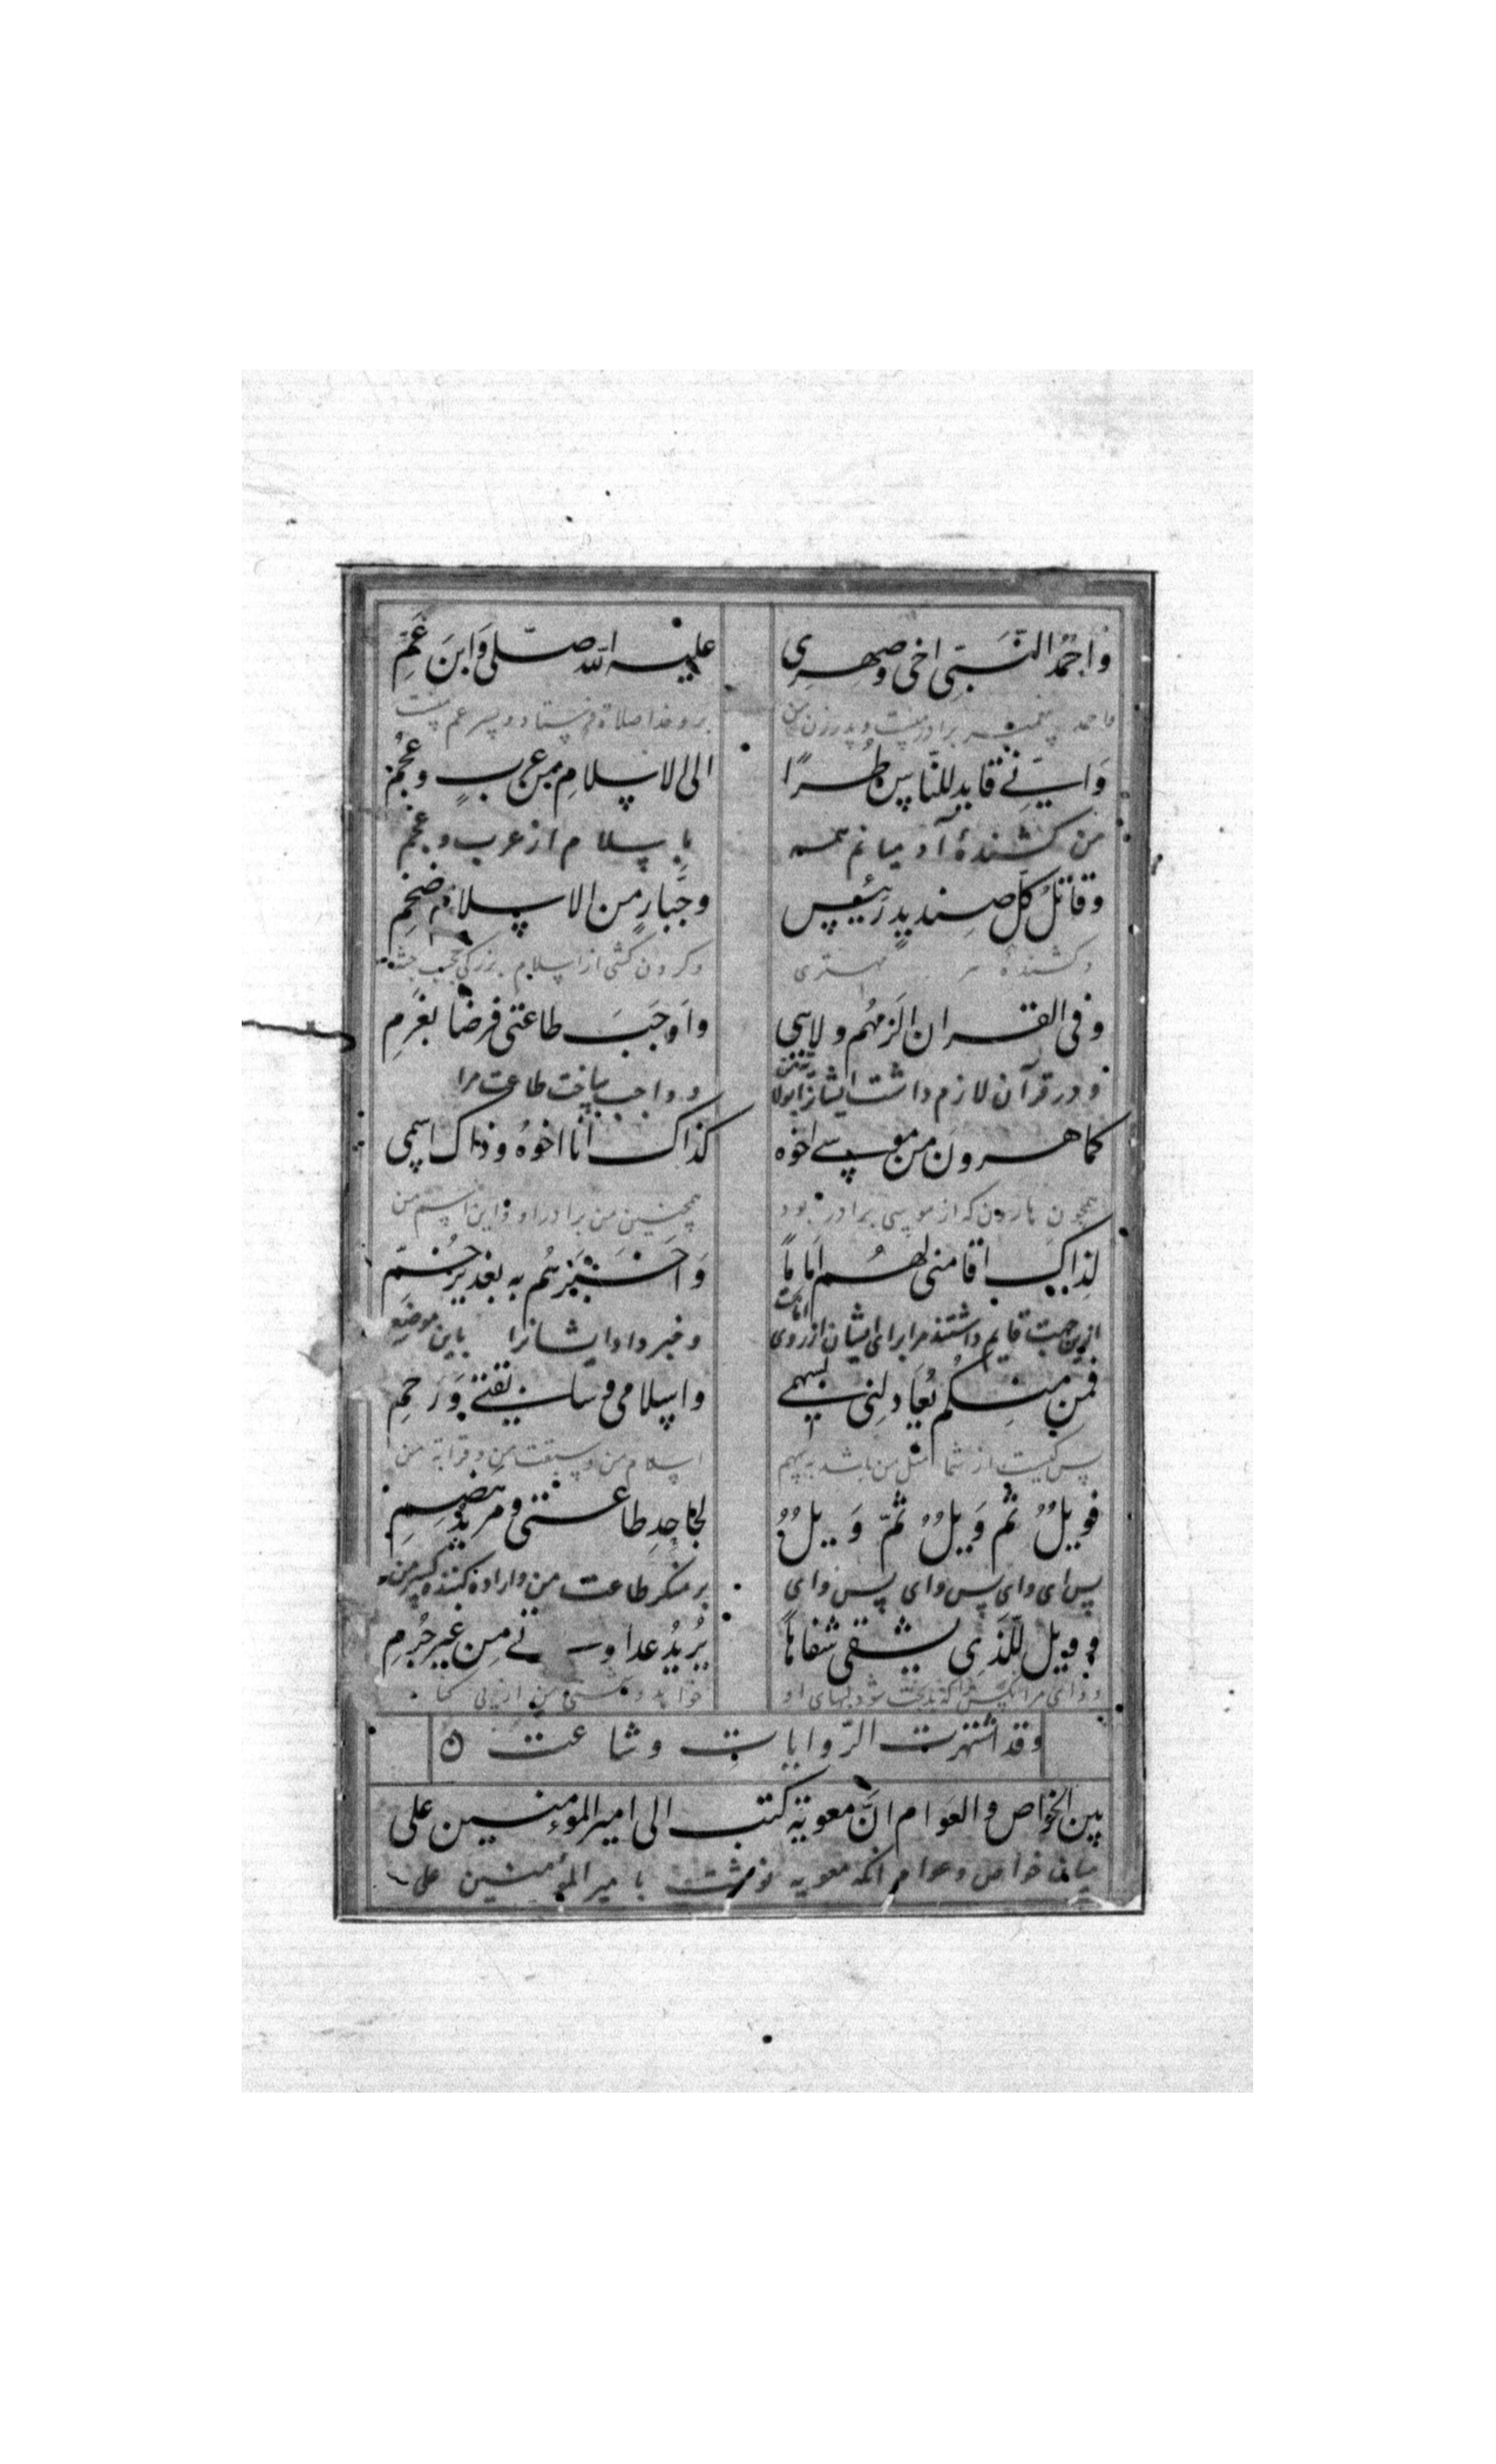 وَاَحْمَدُ النَّبِیِّ اخی وصِهْرِی علیه الله صلّی وَابنَ عَمِّ
واحمد پیغمبر برادر منست و پدر زن من بر او خدا صلاة فرستاد و پسر عم منست
وَانّنِی قاید للنّاس طُرًّا الی الاسلامِ من عربٍ وعجمِ
من کشندهٔ آدمیانم همه باسلام از عرب و عجم
وقاتلُ کلّ صندیدٍ رئیسٍ وجَبّارٍ من الاسلام ضخمِ
وکشندهٔ هر مهتری وگردن کشی از اسلام بزرگی جثه
وفی القران الزمهُم ولایی واَوجَبَ طاعتی فرضًا بعَزمِ
ودر قرآن لازم داشت ایشانرا بولا و واجب ساخت طاعت مرا
کما هرون من موسی اخوه کذاک انا اخوهُ وذاک اسمی
همچون هارون که از موسی برادر بود همچنین من برادر او و این اسم من
لذاک اقامنی لهم اماماً وَاخبرهُم به بغدیرِ خُمِّ
ازین جهت قایم داشتند مرا برای ایشان از روی امامت وخبر داد ایشانرا باین موضع
فمن منکم یُعادلنی بسهمی واسلامی وسابقتی وَرَحمِ
پس کیست از شما مثل من باشد بسهم اسلام من وسبقت من و قرابة من
فویلٌ ثمّ وَیلٌ ثمّ وَیلٌ لجاحِدِ طاعتی ومرید هضمِ
پس ای وای پس وای پس وای بر منکر طاعت من واراده کننده کسر من
وویل للّذی یشقی شفاهاً یُریدُ عداوتی مِن غیرِ جُرمِ
ووای مر آنکس را که بدبخت شود لبهای او خواهد دشمنی من از
وقد اشتهرت الرّوایات وشاعت
بین الخواص والعوام انَّ معویة کتب الی امیر المؤمنین علی
میان خواص وعوام آنکه معویه نوشت با میر المؤمنین علی